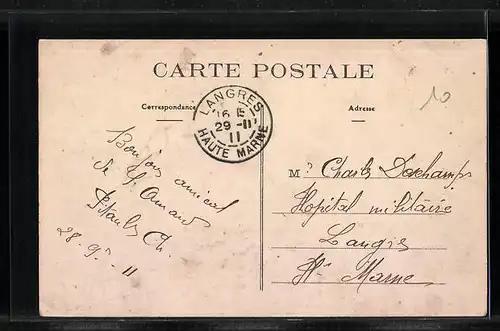 CARTE POSTALE
Correspondance
Adresse
LANGRES
16 15
29 - II
11
HAUTE MARNE
10
Bonjour amical
de St Amand
Ch.
28-9-11
Mr Charles Deschamps
Hopital militaire
Langres
Hte Marne